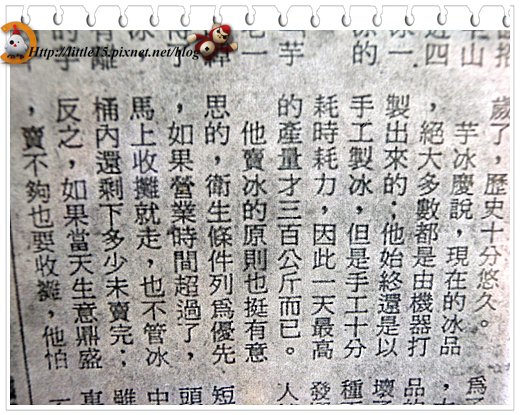 Http://little15.pixnet.net/blog
山
近四
冰一
的
芋
歲了，歷史十分悠久。
芋冰慶說，現在的冰品
，絕大多數都是由機器打
製出來的；他始終還是以
手工製冰，但是手工十分
耗時耗力，因此一天最高
的產量才三百公斤而已。
他賣冰的原則也挺有意
思的，衛生條件列爲優先
，如果營業時間超過了，
馬上收攤就走，也不管冰
桶內還剩下多少未賣完；
反之，如果當天生意鼎盛
，賣不夠也要收攤，他怕
爲
品的
壞
種
發
人
短
頭
中
雖